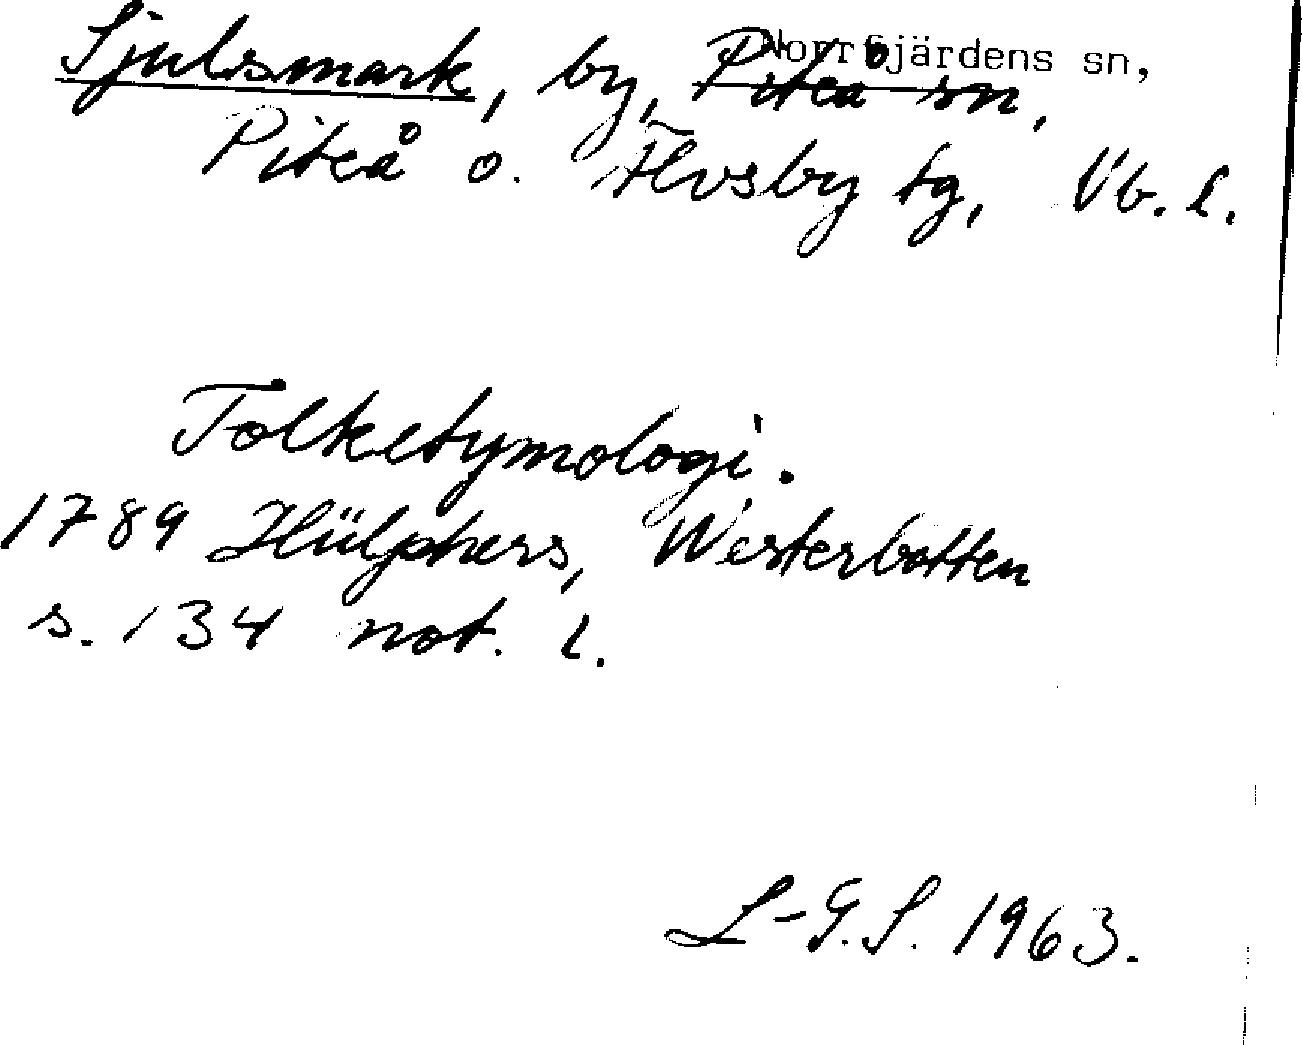 Norrfjärdens sn,
Sjulsmark, by, Piteå sn,
Piteå o. Älvsby tg, Vb. l.
Folketymologi.
1789 Hülphers, Westerbotten
s. 134 not. l.
L-G.S. 1963.